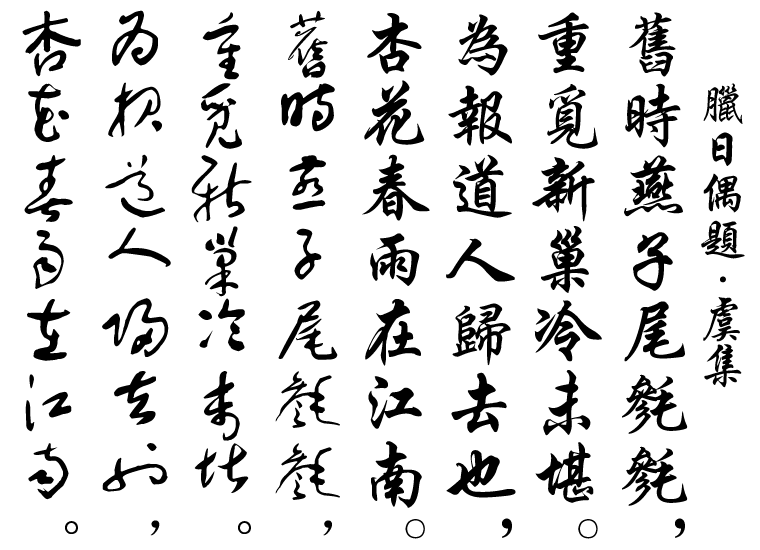 臘日偶題·虞集
舊時燕子尾毿毿，
重覓新巢冷未堪。
為報道人歸去也，
杏花春雨在江南。
舊時燕子尾毿毿，
重覓新巢冷未堪。
為報道人歸去也，
杏花春雨在江南。